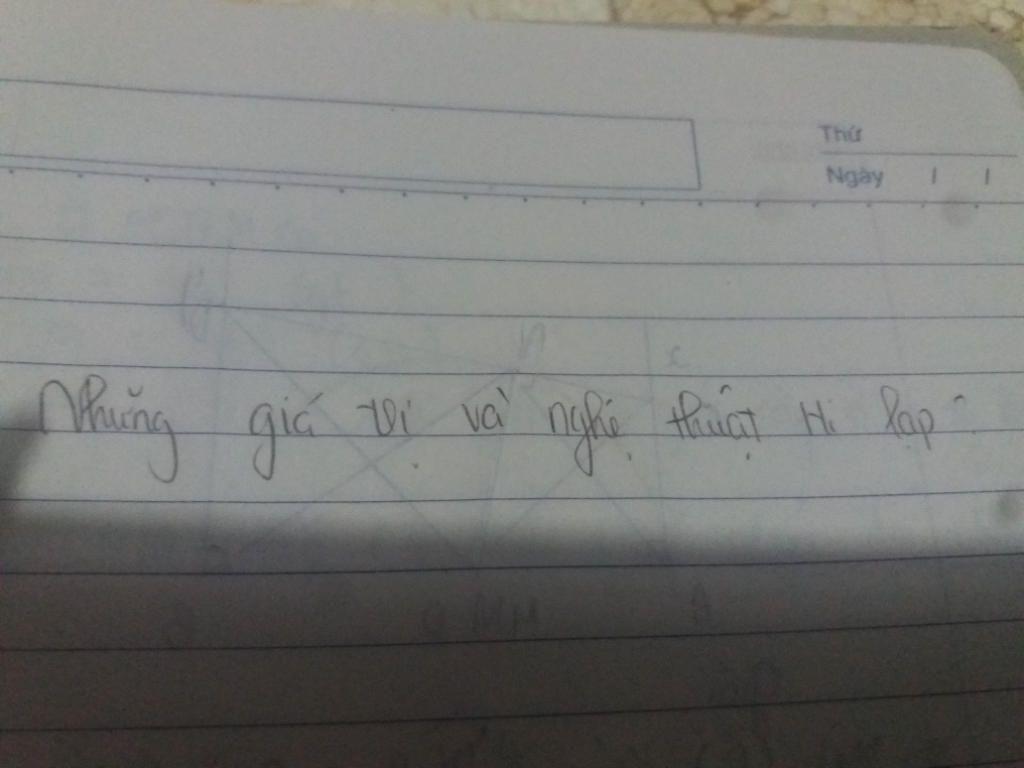 Thứ
Ngày / /
Những giá trị và nghệ thuật Hi Lạp